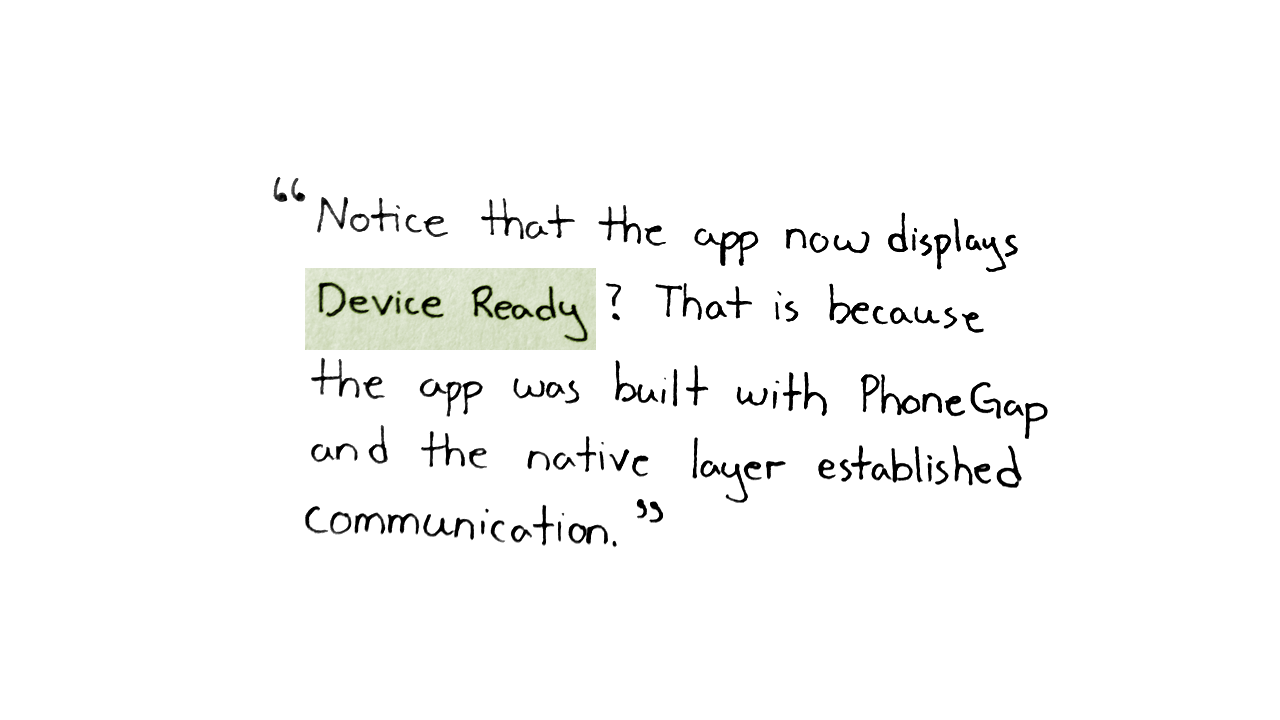 “Notice that the app now displays
Device Ready? That is because
the app was built with PhoneGap
and the native layer established
communication.”